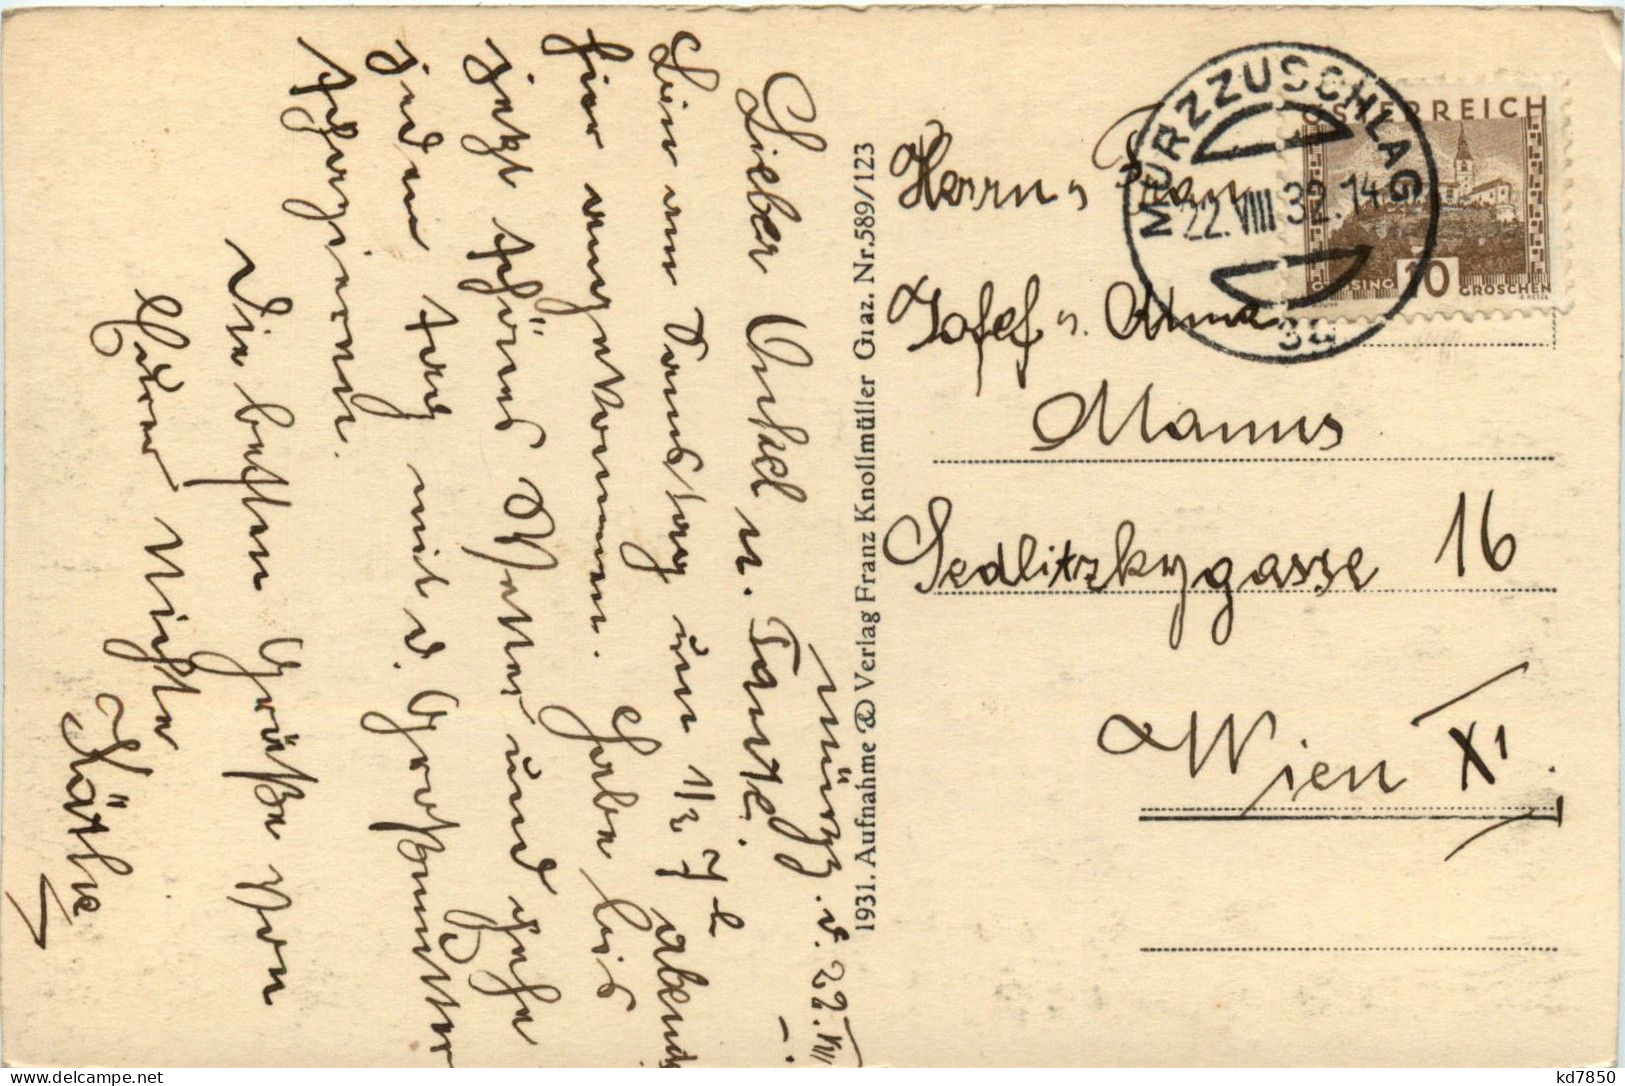 Mürzz. d. 22. VIII
Lieber Onkel u. Tante!
Bin am Samstag um 1/2 7 h abends
hier angekommen. Habe bis
jetzt schönes Wetter und gehe
jeden Tag mit d. Großmutter
spazieren.
Die besten Grüße von
Eurer Nichte
Käthe
1931. Aufnahme & Verlag Franz Knollmüller Graz. Nr. 589/123
MÜRZZUSCHLAG
22.VIII 32.14
3a
ÖSTERREICH
GÜSSING 10 GROSCHEN
Herrn u Frau
Josef u. Alma
Manus
Sedlitzkygasse 16
Wien XI.
kd7850